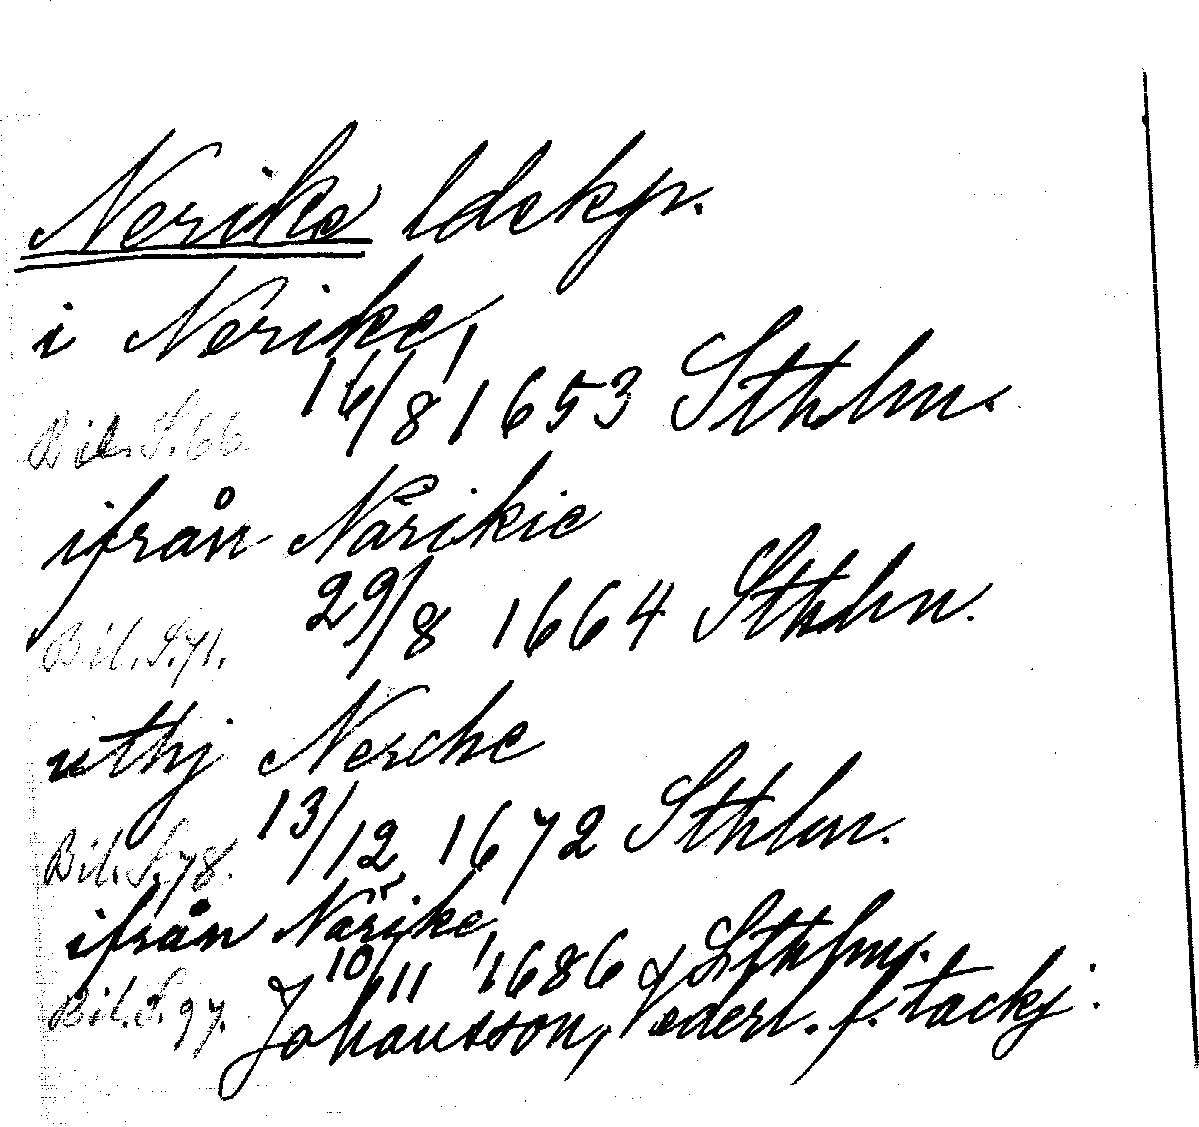 Nerike ldskp.
i Nerike,
Bil. S. 66. 16/8 1653 Sthlm.
ifrån Närikie
Bil. S. 71. 29/8 1664 Sthlm.
uthj Nerche
Bil. S. 78. 13/12 1672 Sthlm.
ifrån Närike,
10/11 1686 Sthlm.
Bil. S. 97. Johansson, Nederl. f. tackj.